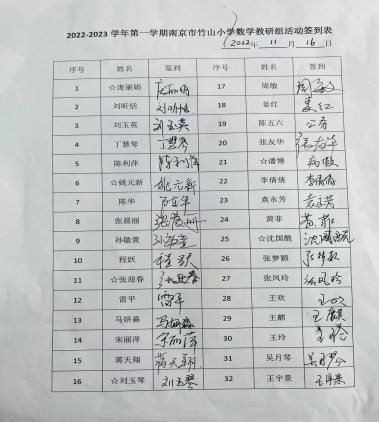 2022-2023 学年第一学期南京市竹山小学数学教研组活动签到表
2022年 11月 16日
序号 姓名 签到 序号 姓名 签到
1 ☆庞丽娟 庞丽娟 17 周敏 周敏
2 刘昕恬 刘昕恬 18 姜红 姜红
3 刘玉英 刘玉英 19 陈五六 公务
4 丁慧琴 丁慧琴 20 张友华 张友华
5 陈利萍 陈利萍 21 ☆潘博 病假
6 ☆姚元新 姚元新 22 李倩倩 李倩倩
7 陈华 陈华 23 袁永芳 袁永芳
8 张晨丽 24 黄菲 黄菲
9 孙敏萱 孙敏萱 25 ☆沈国酷
10 程跃 程跃 26 张梦颖
11 ☆张迎春 张迎春 27 张凤玲 张凤玲
12 雷平 雷平 28 王欢 王欢
13 马妍淼 马妍淼 29 王麒 王麒
14 宋丽萍 宋丽萍 30 王玲 王玲
15 蒋天翔 蒋天翔 31 吴月琴 吴月琴
16 ☆刘玉琴 刘玉琴 32 王宇景 王宇景